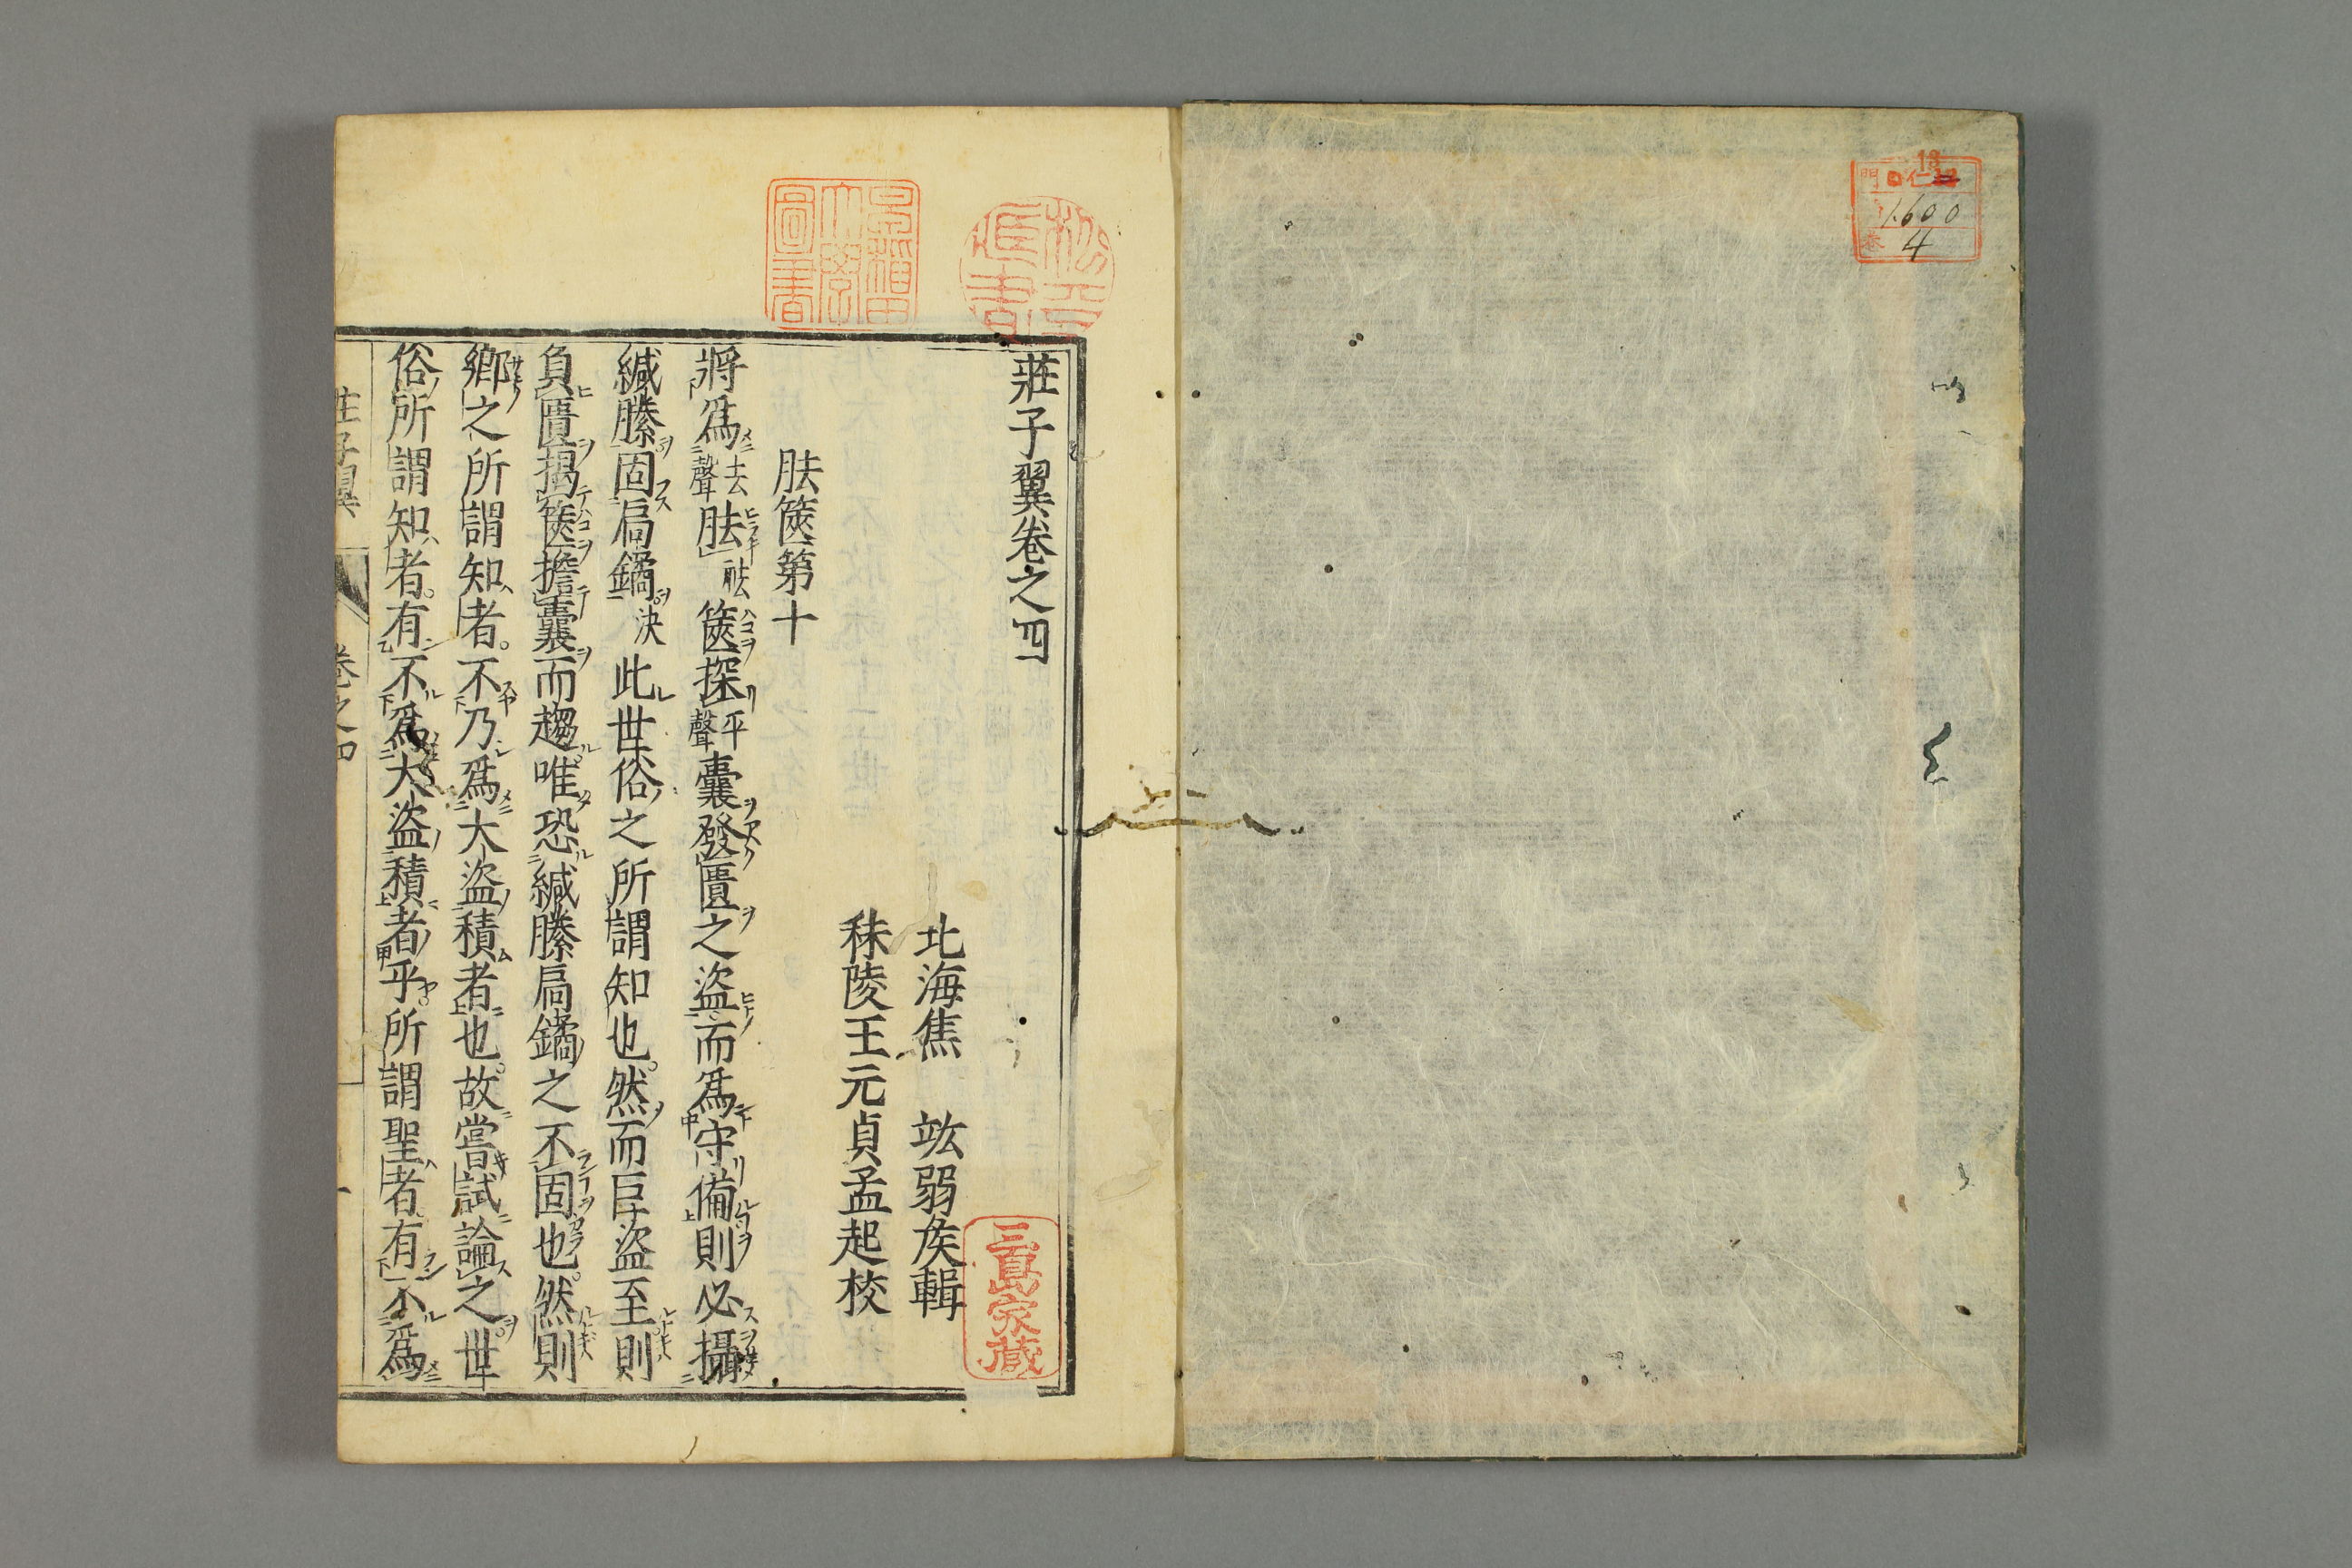 莊子翼卷之四
北海焦 竑弱矦輯
秣陵王元貞孟起校
胠篋第十
將爲去聲胠祛篋探平聲囊發匱之盜而爲守備則必攝
緘縢固扃鐍決此世俗之所謂知也然而巨盜至則
負匱揭篋擔囊而趨唯恐緘縢扃鐍之不固也然則
鄉之所謂知者不乃爲大盜積者也故嘗試論之世
俗所謂知者有不爲大盜積者乎所謂聖者有不爲
莊子翼 卷之四 一
早稲田大學圖書
三島家藏
門 仁 13
1600
卷 4